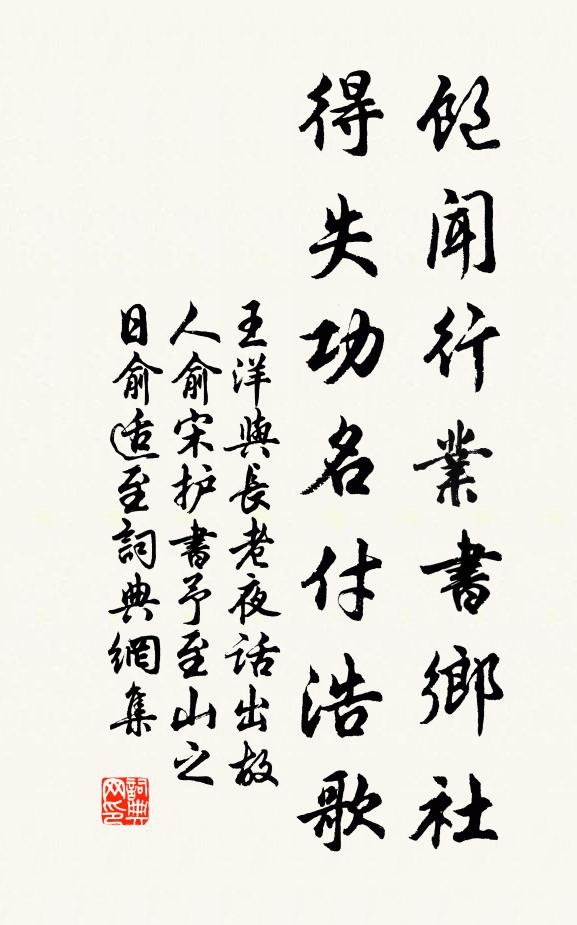 飽聞行業書鄉社
得失功名付浩歌
王洋與長老夜話出故
人俞宋护書予至山之
日俞适至詞典網集
詞典网印